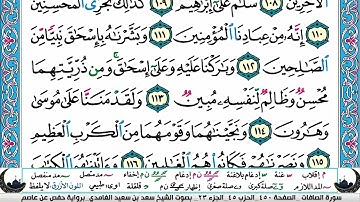 الْآخِرِينَ ١٠٨ سَلَامٌ عَلَىٰ إِبْرَاهِيمَ ١٠٩ كَذَٰلِكَ نَجْزِي الْمُحْسِنِينَ
١١٠ إِنَّهُ مِنْ عِبَادِنَا الْمُؤْمِنِينَ ١١١ وَبَشَّرْنَاهُ بِإِسْحَاقَ نَبِيًّا مِّنَ
الصَّالِحِينَ ١١٢ وَبَارَكْنَا عَلَيْهِ وَعَلَىٰ إِسْحَاقَ ۚ وَمِن ذُرِّيَّتِهِمَا
مُحْسِنٌ وَظَالِمٌ لِّنَفْسِهِ مُبِينٌ ١١٣ وَلَقَدْ مَنَنَّا عَلَىٰ مُوسَىٰ
وَهَارُونَ ١١٤ وَنَجَّيْنَاهُمَا وَقَوْمَهُمَا مِنَ الْكَرْبِ الْعَظِيمِ
١١٥ وَنَصَرْنَاهُمْ فَكَانُوا هُمُ
سورة الصافات الصفحة ٤٥٠ الجزء ٢٣ بصوت الشيخ سعد بن سعيد الغامدي برواية حفص عن عاصم